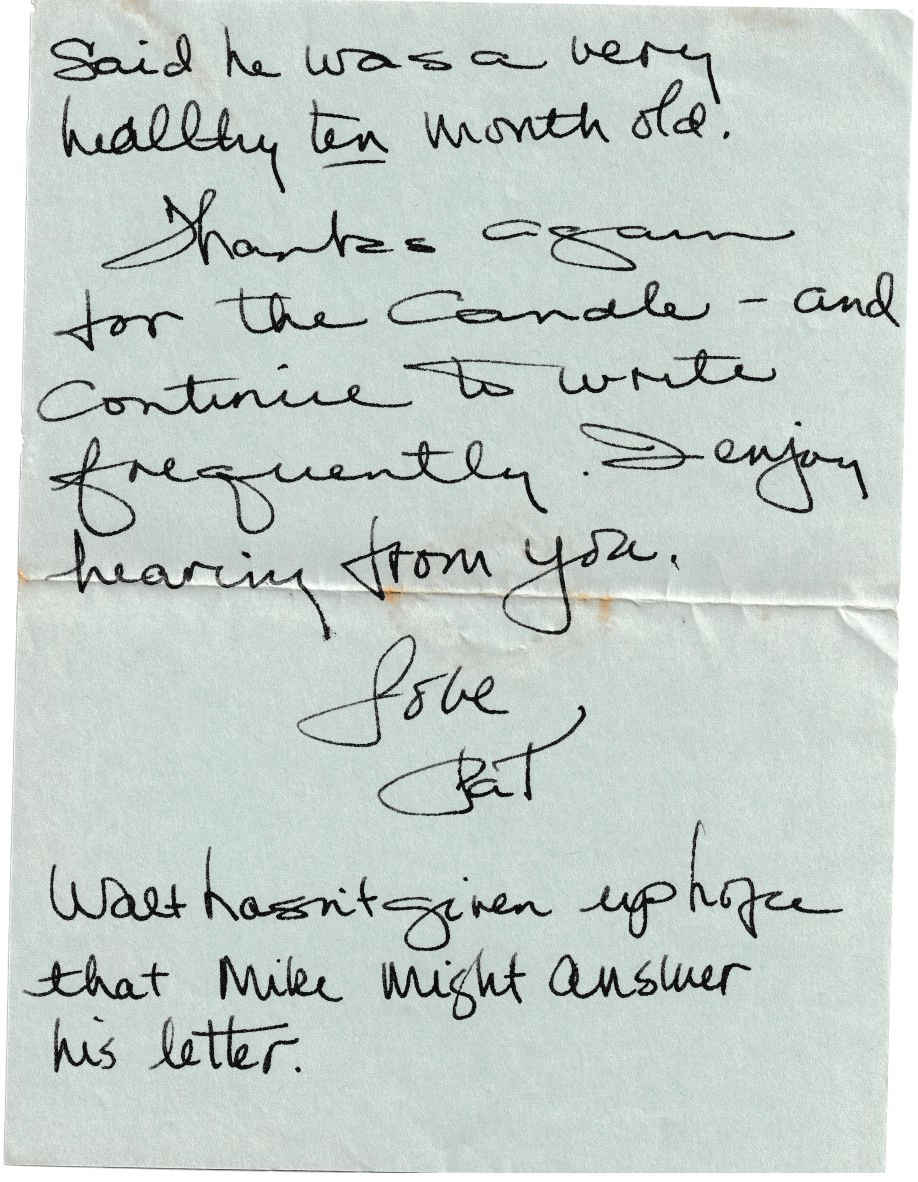 Said he was a very
healthy ten month old.
Thanks again
for the Candle - and
Continue to write
frequently. I enjoy
hearing from you.
Love
Pat
Walt hasn't given up hope
that Mike might answer
his letter.